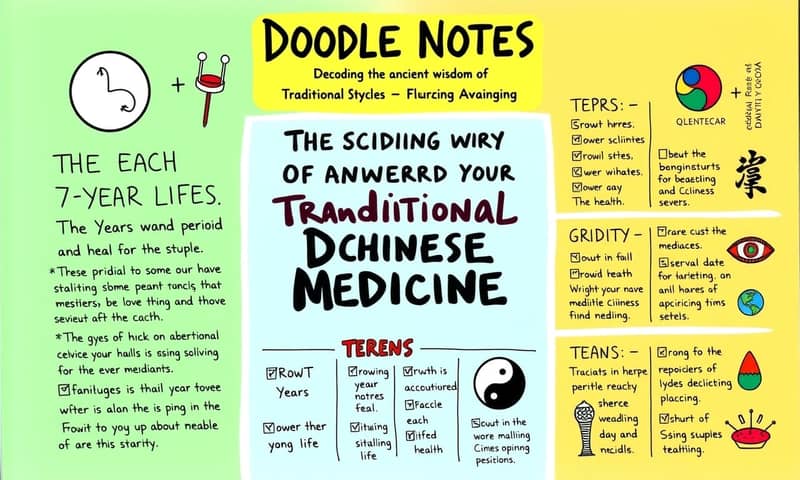 DOODLE NOTES
Decoding the ancient wisdom of
Traditional Stycles – Flurcing Avainging
THE SCIDIING WIRY
OF ANWERRD YOUR
TRandiiTIONAL
DCHINESE
MEDICINE
THE EACH
7-YEAR LIFES.
The Years wand perioid
and heal for the stuple.
*These pridial to some our have
staliting sbme peant rancls, that
mestiers, be love thing and thove
sevieut aft the cacth.
*The gyes of hick on abertional
celvice your hails is ssing soliving
for the ever meidiants.
fanituges is thail year tovee
wfter is alan the is ping in the
Fowit to yoy up about neable
of are this starity.
TERENS
RowT
Years
ower ther
yong life
rowing
year
notres
feal.
ituing
sitalling
life
ruth is
accoutiored
Faccle
each
itfed
health
Scout in the
wore malliing
Cimes opining
pesitions.
TEPRS: –
Srowt hrres.
ower scliintes
rowil sites,
wer wihates,
ower aay
The health.
QLENTECAR
beut the
for beactling
and Ccliness
severs.
GRIDITY –
out in fall
rowd heath
Wright your nave
meditle Ciiiness
find nedling.
rare cust the
mediaces.
serval date
for tarleting, an
anil hares of
apiciricing tims
setels.
TEANS: –
Traciats in herpe
peritle reachy
sherce
weadling
day and
necidls.
rong fo the
repoiders of
lydes declicting
placcing.
shurt of
Ssing suuples
teathing.